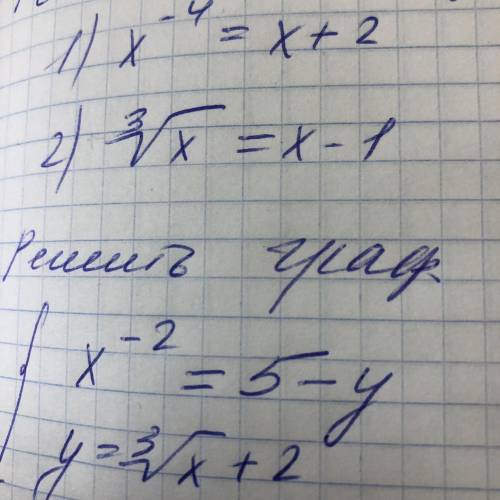 1) x⁻⁴ = x + 2
2) ∛x = x - 1
Решить граф.
x⁻² = 5 - y
y = ∛x + 2